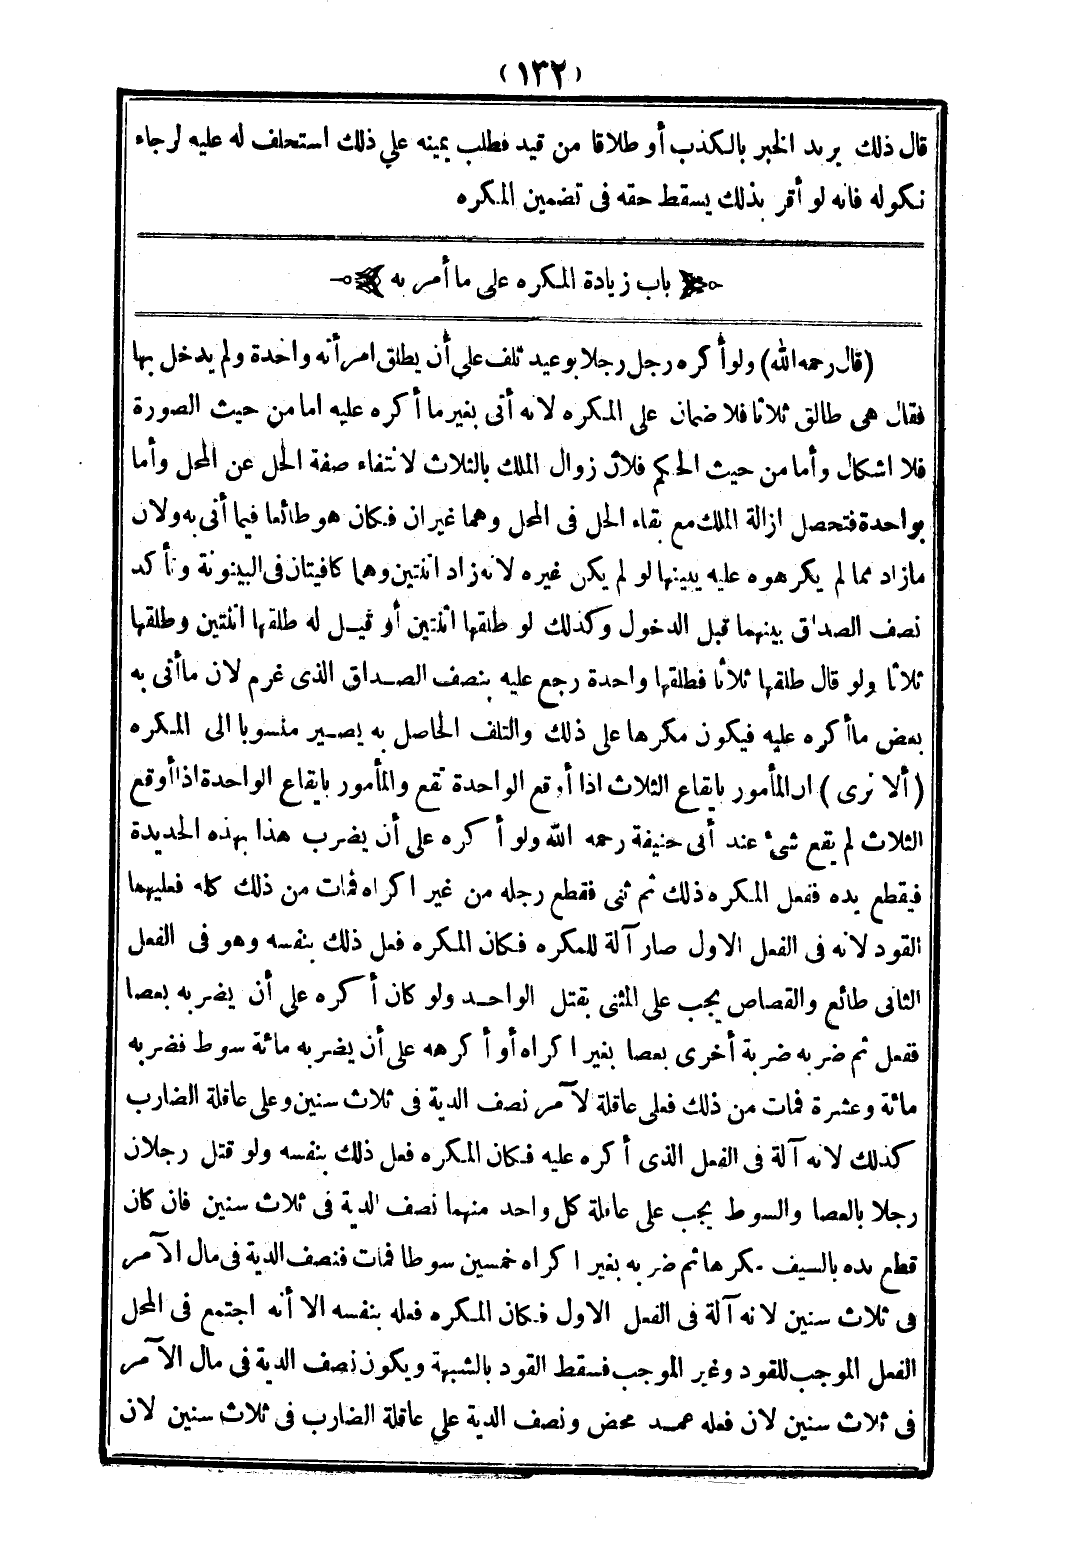 (١٣٢)
قال ذلك يريد الخبر بالكذب أو طلاقا من قيد فطلب يمينه علي ذلك استحلف له عليه لرجاء
نكوله فانه لو أقر بذلك يسقط حقه فى تضمين المكره
باب زيادة المكره على ما أمر به
(قال رحمه الله) ولو أكره رجل رجلا بوعيد تلف على أن يطلق امرأته واحدة ولم يدخل بها
فقال هى طالق ثلاثا فلا ضمان على المكره لانه أتى بغير ما أكره عليه اما من حيث الصورة
فلا اشكال وأما من حيث الحكم فلان زوال الملك بالثلاث لانتفاء صفة الحل عن المحل وأما
بواحدة فتحصل ازالة الملك مع بقاء الحل فى المحل وهما غيران فكان هو طائعا فيما أتى به ولان
مازاد مما لم يكرهوه عليه يبينها لو لم يكن غيره لانه زاد اثنتين وهما كافيتان فى البينونة وتأكد
نصف الصداق بينهما قبل الدخول وكذلك لو طلقها اثنتين أو قيل له طلقها اثنتين وطلقها
ثلاثا ولو قال طلقها ثلاثا فطلقها واحدة رجع عليه بنصف الصداق الذى غرم لان ما أتى به
بعض ما أكره عليه فيكون مكرها على ذلك والتلف الحاصل به يصير منسوبا الى المكره
(ألا ترى) ان المأمور بايقاع الثلاث اذا أوقع الواحدة تقع والمأمور بايقاع الواحدة اذا أوقع
الثلاث لم يقع شىء عند أبى حنيفة رحمه الله ولو أكره على أن يضرب هذا بهذه الحديدة
فيقطع يده ففعل المكره ذلك ثم ثنى فقطع رجله من غير اكراه فمات من ذلك كله فعليهما
القود لانه فى الفعل الاول صار آلة للمكره فكان المكره فعل ذلك بنفسه وهو فى الفعل
الثانى طائع والقصاص يجب على المثنى بقتل الواحد ولو كان أكره على أن يضربه بعصا
ففعل ثم ضربه ضربة أخرى بعصا بغير اكراه أو أكرهه على أن يضربه مائة سوط فضربه
مائة وعشرة فمات من ذلك فعلى عاقلة لآمر نصف الدية فى ثلاث سنين وعلى عاقلة الضارب
كذلك لانه آلة فى الفعل الذى أكره عليه فكان المكره فعل ذلك بنفسه ولو قتل رجلان
رجلا بالعصا والسوط يجب على عاقلة كل واحد منهما نصف الدية فى ثلاث سنين فان كان
قطع يده بالسيف مكرها ثم ضربه بغير اكراه خمسين سوطا فمات فنصف الدية فى مال الآمر
فى ثلاث سنين لانه آلة فى الفعل الاول فكان المكره فعله بنفسه الا أنه اجتمع فى المحل
الفعل الموجب للقود وغير الموجب فسقط القود بالشبهة ويكون نصف الدية فى مال الآمر
فى ثلاث سنين لان فعله عمد محض ونصف الدية علي عاقلة الضارب فى ثلاث سنين لان